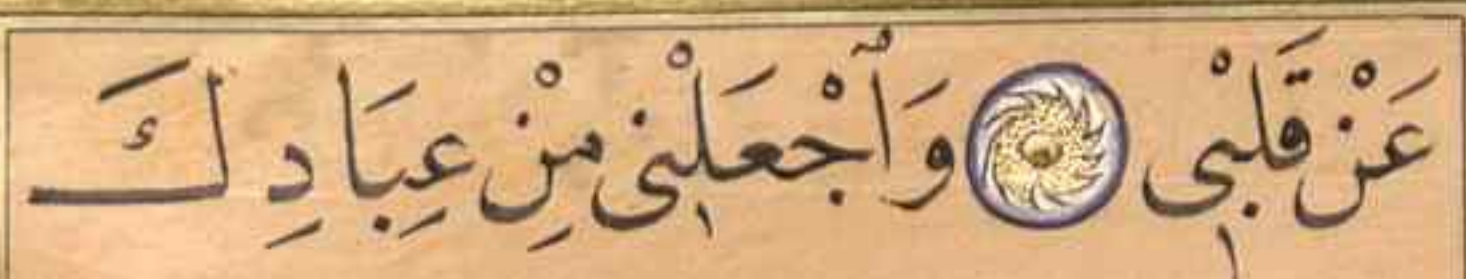 عَنْ قَلْبِي وَاجْعَلْنِي مِنْ عِبَادِكَ